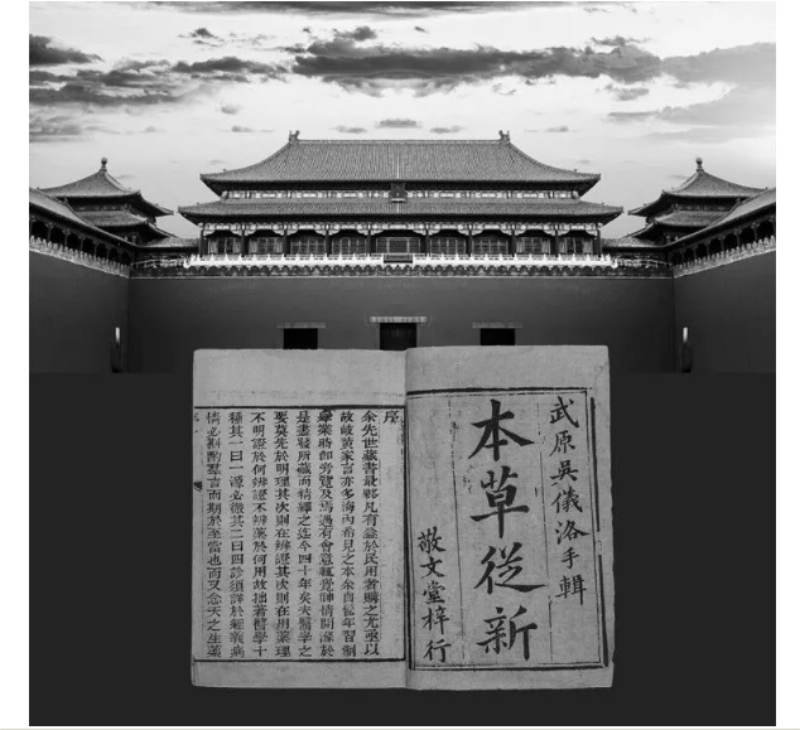 武原吳儀洛手輯
本草從新
敬文堂梓行
序
余先世藏書最夥凡有益於民用者購之尤亟以
故岐黃家言亦多海內希見之本余自髫年習制
舉業時即旁覽及焉遇有會意輒覺神情開滌於
是盡發所藏而精繹之迄今四十年矣夫醫學之
要莫先於明理其次則在辨證其次則在用藥理
不明證於何辨證不辨藥於何用故拙著醫學十
種其一曰一源必徹其二曰四診須詳於經義病
情必斟酌羣言而期於至當也而又念天之生藥